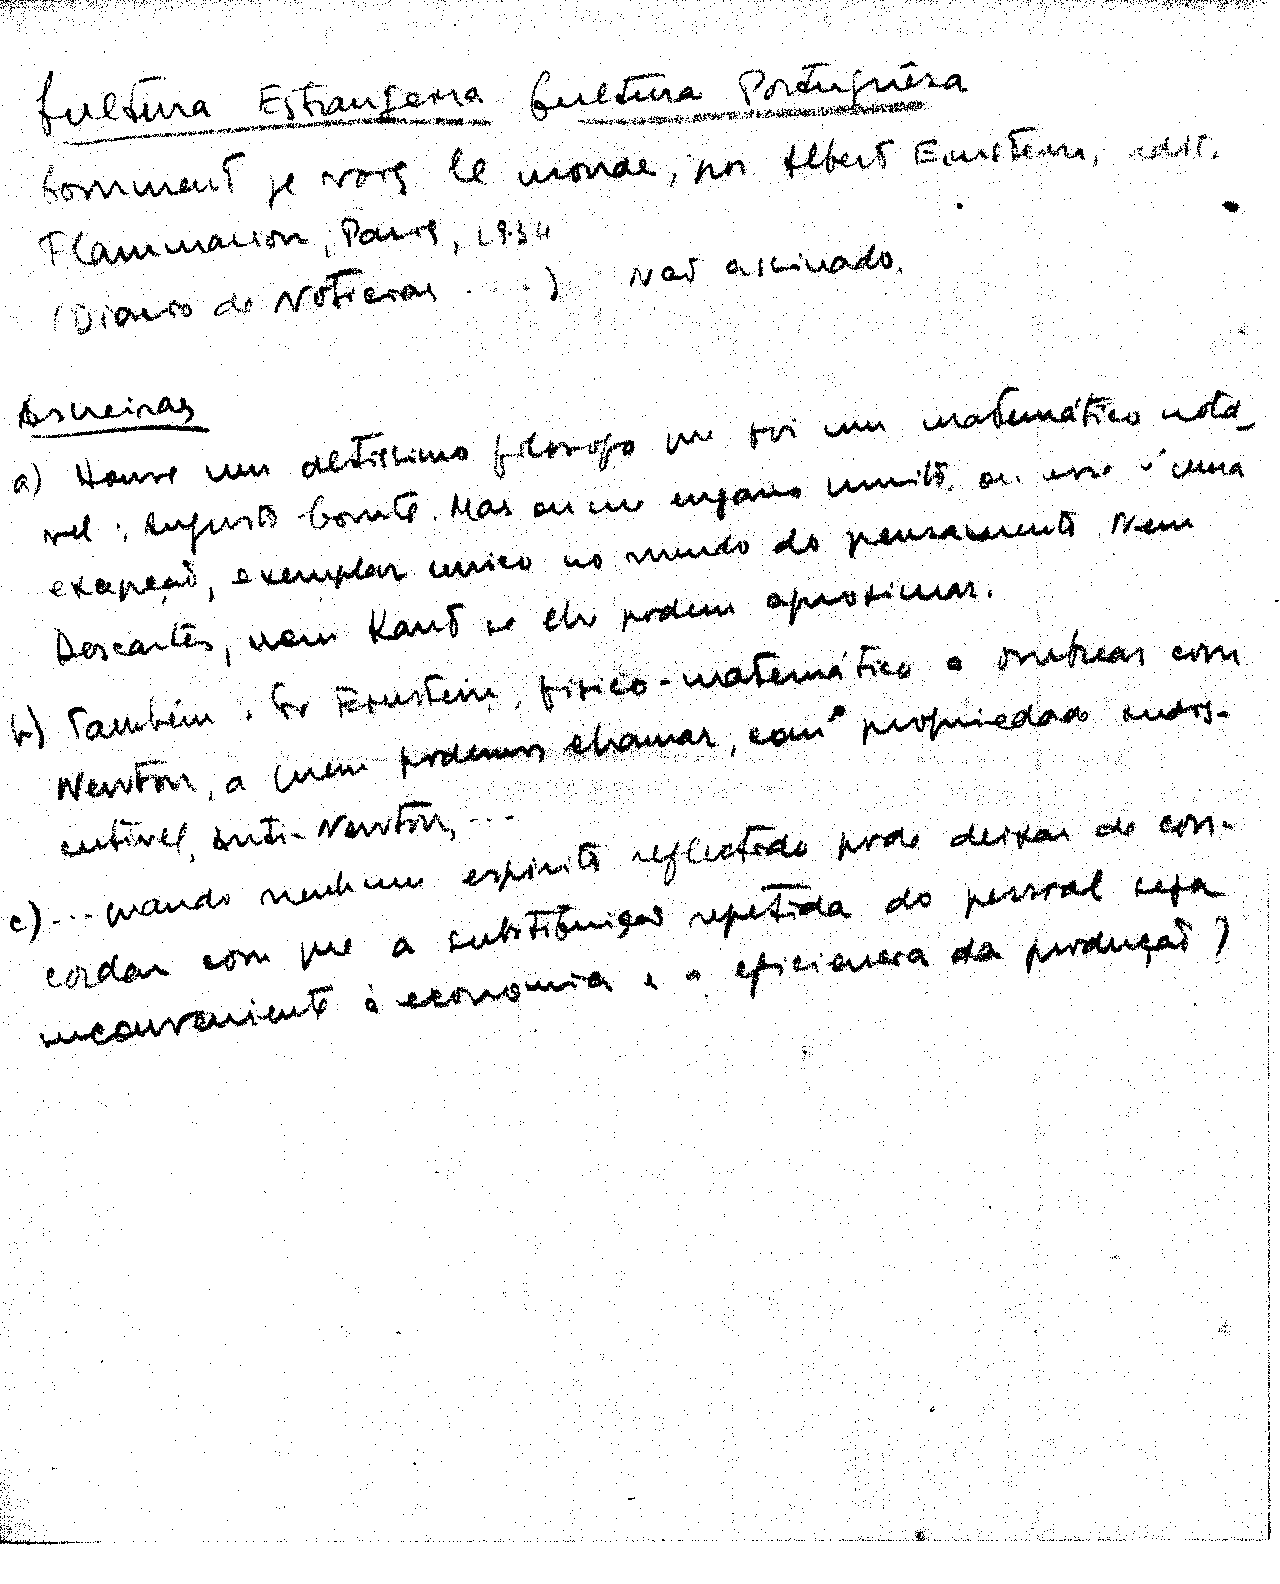 Cultura Estrangeira Cultura Portuguêsa
Comment je vois le monde, por Albert Einstein, edit.
Flammarion, Paris, 1934
(Diario de Noticias . . .) Não assinado.
Asneiras
a) Houve um altissimo filosofo que foi um matemático notá-
vel: Augusto Comte. Mas ou me engano muito, ou esse é uma
excepção, exemplar unico no mundo do pensamento Nem
Descartes, nem Kant se lhe podem aproximar.
b) Também Einstein, fisico-matemático a ombrear com
Newton, a quem podemos chamar, com propriedade indis-
cutivel, anti-Newton, ...
c) ... quando nenhum espirito reflectido pode deixar de con-
cordar com que a substituição repetida do pessoal seja
inconveniente à economia e a eficiencia da produção)